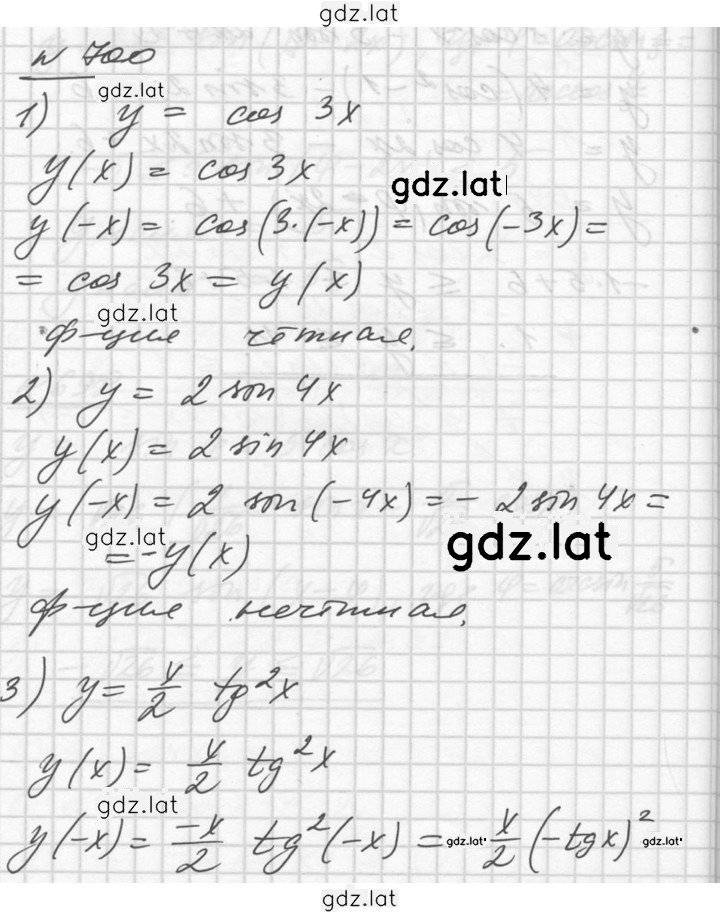 gdz.lat
N 700
gdz.lat
1) y = cos 3x
y(x) = cos 3x
gdz.lat
y(-x) = cos(3·(-x)) = cos(-3x) =
= cos 3x = y(x)
gdz.lat
ф-ция чётная.
2) y = 2 sin 4x
y(x) = 2 sin 4x
y(-x) = 2 sin(-4x) = - 2 sin 4x =
gdz.lat
= -y(x)
gdz.lat
ф-ция нечётная.
3) y = x/2 tg²x
y(x) = x/2 tg²x
gdz.lat
y(-x) = -x/2 tg²(-x) = gdz.lat x/2 (-tgx)² gdz.lat
gdz.lat